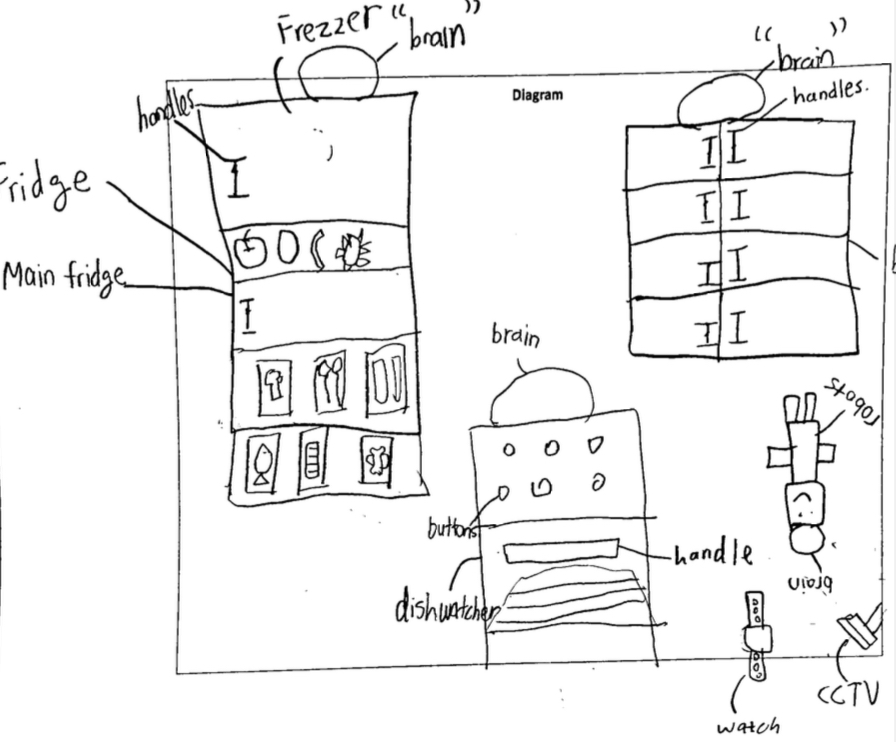 Frezzer
" brain "
handles
Diagram
" brain "
handles.
Fridge
Main fridge
brain
robots
buttons
handle
dishwatcher
brain
watch
CCTV